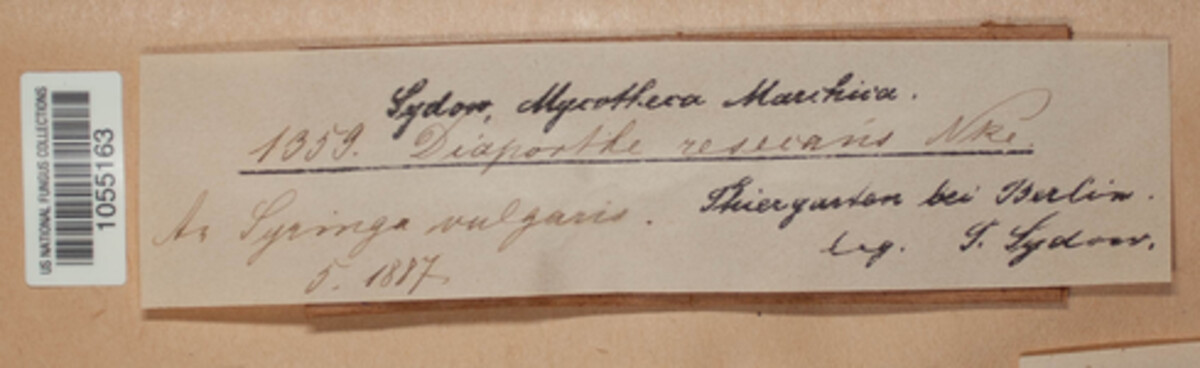 US NATIONAL FUNGUS COLLECTIONS
1055163
Sydow, Mycotheca Marchica.
1359. Diaporthe resecans Nke.
An Syringa vulgaris.
Thiergarten bei Berlin.
5. 1887.
leg. P. Sydow.